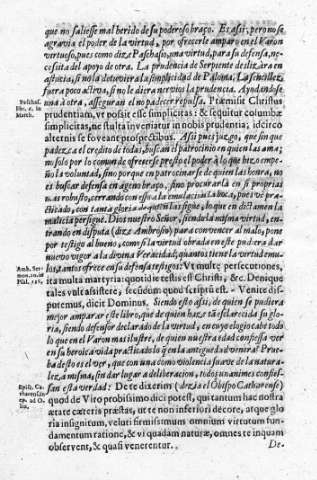 que no saliesse mal herido de su poderoso braço. Es assi, pero no se
agravia el poder de la virtud, por ofrecerle amparo en el Varon
virtuoso, pues como dize Paschasio, una virtud, para su defensa, ne-
cessita del apoyo de otra. La prudencia de Serpiente deslizàra en
astucia, si no la detuviera la simplicidad de Paloma. La sencillez,
fuera poco activa, si no le diera nervios la prudencia. Ayudandose
una à otra, asseguran el no padecer repulsa. Præmisit Christus
prudentiam, vt possit esse simplicitas: & sequitur columbæ
simplicitas, ne stulta inveniatur in nobis prudentia; idcirco
alternis se foveant prospectibus.
Paschas.
lib. 6. in
March.
padezca el credito de todas, buscan el patrocinio en quien las ama;
no solo por lo comun de ofrecerse presto el poder à lo que hizo empe-
ño la voluntad, sino porque en patrocinarse de quien las honra, no
es buscar defensa en ageno braço, sino procurarla en si proprias
mas robusto, cerrando con essa la emulacion la boca, pues ve pra-
cticado, con tanta gloria de quien las sigue, lo que en dictamen la
malicia persigue. Dios nuestro Señor, siendo la misma virtud, en-
trando en disputa (dize Ambrosio) para convencer al malo, pone
por testigo al bueno, como si la virtud obrada en este pudiera dar
nuevo vigor à la divina Veracidad; quantos tiene la virtud emu-
los, tantos ofrece en su defensa testigos: Vt multæ persecutiones,
ita multa martyria: quotidie testis est Christi, &c. Denique
tales vult assistere, secundùm quod scriptũ est. Venite dis-
putemus, dicit Dominus. Siendo esto assi, de quien se pudiera
mejor amparar este libro, que de quien haze tã esclarecida su glo-
ria, siendo defensor declarado de la virtud, en cuyo elogio cabe todo
lo que en el Varon mas ilustre, de quien nuestra edad confiessa ver
en su heroica vida practicado lo q̃ en la antiguedad venera? Prue-
ba desto es el ver, que con una como violencia suave de la natura-
leza misma, sin dar lugar a deliberacion, todos unanimes confies-
san esta verdad: De te dixerim (dezia el Obispo Catharense)
quod de Viro probissimo dici potest, qui tantum hac nostra
ætate cæteris præstas, ut te non inferiori decore, atque glo-
ria insignitum, veluti firmissimum omnium virtutum fun-
damentum ratione, & vi quadam naturæ, omnes te inquam
observent, & quasi venerentur.
De